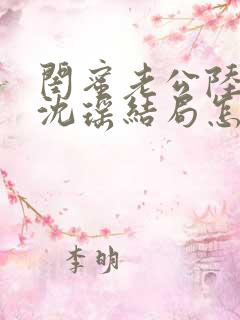 閨蜜老公陸
沈瑶結局怎
李明